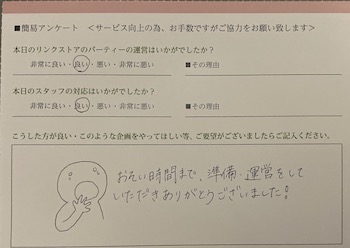 ■簡易アンケート ＜サービス向上の為、お手数ですがご協力をお願い致します＞
本日のリンクストアのパーティーの運営はいかがでしたか？
非常に良い・良い・悪い・非常に悪い ■その理由
本日のスタッフの対応はいかがでしたか？
非常に良い・良い・悪い・非常に悪い ■その理由
こうした方が良い・このような企画をやってほしい等、ご要望がございましたらご記入ください。
おそい時間まで、準備・運営をして
いただきありがとうございました！